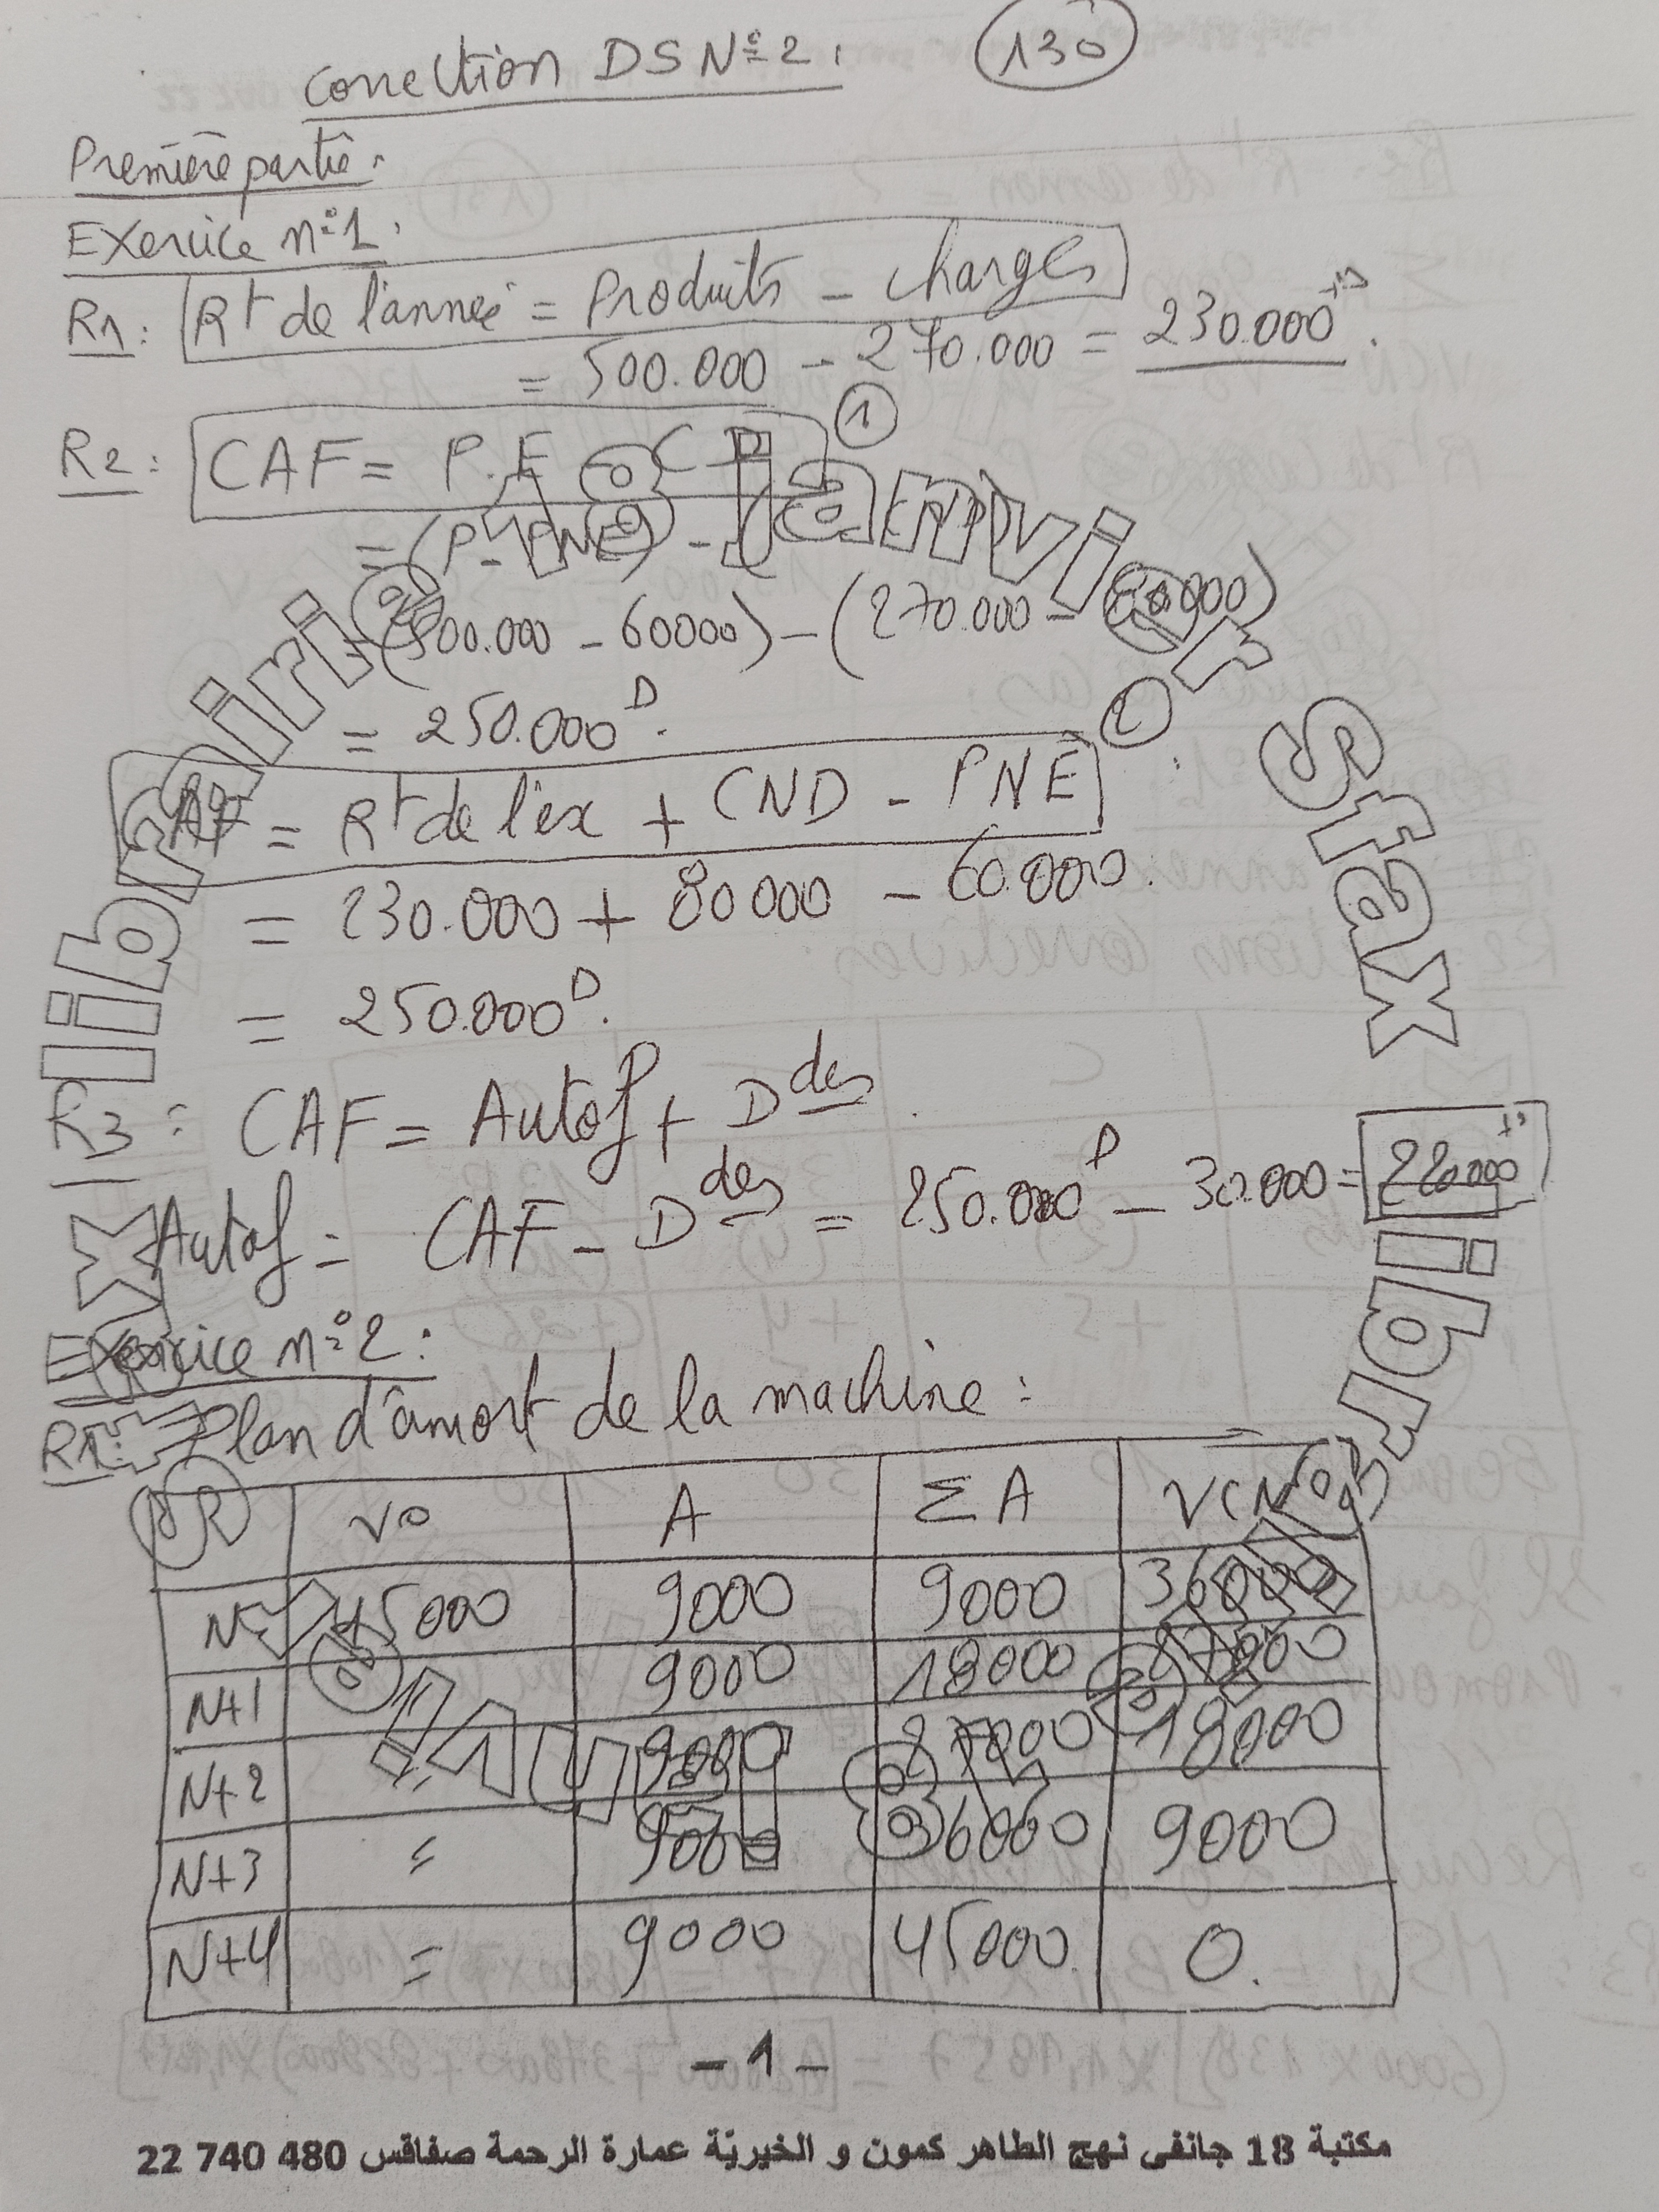 Correction DS N°2. 130
Première partie.
Exercice n°1.
R1: Rt de l'année = Produits - charges
= 500.000 - 270.000 = 230.000
R2: CAF = P.E - C.D 1
= (P - PNE) - (
(500.000 - 60000) - (270.000 - 80.000)
= 250.000 D.
= Rt de l'ex + CND - PNE 2
= 230.000 + 80000 - 60.000.
= 250.000 D.
R3: CAF = Autof + D des
Autof = CAF - D des = 250.000 D - 30.000 = 220.000
Exercice n°2:
R1: Plan d'amort de la machine:
VO A ΣA VCN
N 45000 9000 9000 36000
N+1 9000 18000 27000
N+2 = 9000 27000 18000
N+3 = 9000 36000 9000
N+4 = 9000 45000. 0.
- 1 -
مكتبة 18 جانفي نهج الطاهر كمون و الخيريّة عمارة الرحمة صفاقس 480 740 22
librairie 18 janvier Sfax